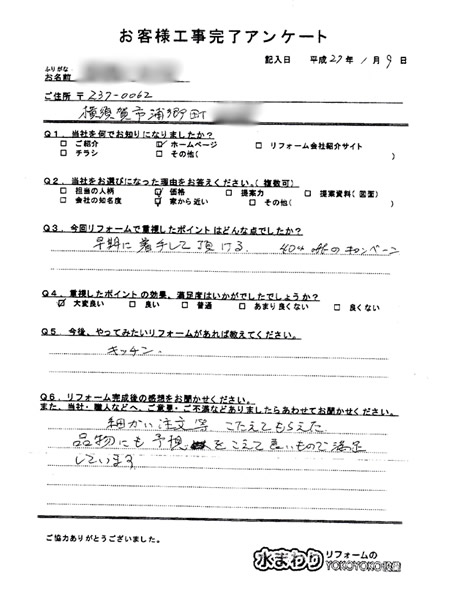 お客様工事完了アンケート
記入日 平成27年 1月 9日
ふりがな
お名前
ご住所 〒237-0062
横須賀市浦郷町
Q1. 当社を何でお知りになりましたか?
□ ご紹介 ☑ ホームページ □ リフォーム会社紹介サイト
□ チラシ □ その他( )
Q2. 当社をお選びになった理由をお答えください。(複数可)
□ 担当の人柄 ☑ 価格 □ 提案力 □ 提案資料(図面)
□ 会社の知名度 ☑ 家から近い □ その他( )
Q3. 今回リフォームで重視したポイントはどんな点でしたか?
早期に着手して頂ける. 40% offのキャンペーン
Q4. 重視したポイントの効果、満足度はいかがでしたでしょうか?
☑ 大変良い □ 良い □ 普通 □ あまり良くない □ 良くない
Q5. 今後、やってみたいリフォームがあれば教えてください。
キッチン.
Q6. リフォーム完成後の感想をお聞かせください。
また、当社・職人などへ、ご意見・ご不満などありましたらあわせてお聞かせください。
細かい注文等 こたえてもらえた
品物にも予想をこえて良いもので満足
しています
ご協力ありがとうございました。
水まわりリフォームのYOKOYOKO設備